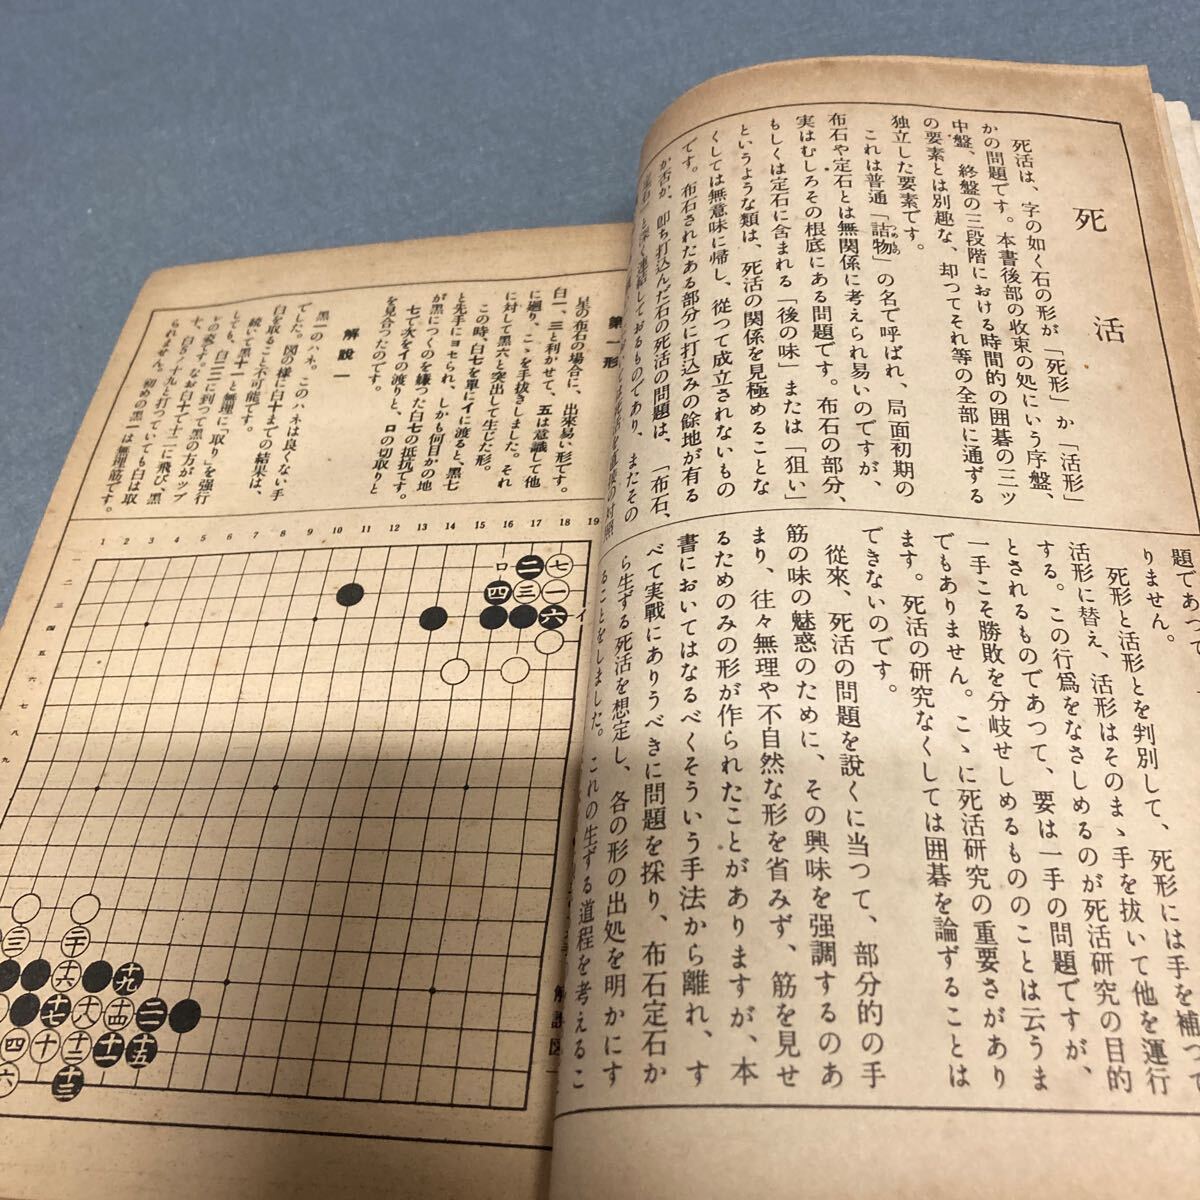 死活
死活は、字の如く石の形が「死形」か「活形」
かの問題です。本書後部の收束の処にいう序盤、
中盤、終盤の三段階における時間的の囲碁の三ツ
の要素とは別趣な、却つてそれ等の全部に通ずる
独立した要素です。
これは普通「詰物」の名で呼ばれ、局面初期の
布石や定石とは無関係に考えられ易いのですが、
実はむしろその根底にある問題です。布石の部分、
もしくは定石に含まれる「後の味」または「狙い」
というような類は、死活の関係を見極めることな
くしては無意味に帰し、從つて成立されないもの
です。布石されたある部分に打込みの餘地が有る
か否か、即ち打込んだ石の死活の問題は、「布石、
と深く連結しておるものであり、またその
題であつて
りません。
死形と活形とを判別して、死形には手を補つて
活形に替え、活形はそのまゝ手を抜いて他を運行
する。この行爲をなさしめるのが死活研究の目的
とされるものであつて、要は一手の問題ですが、
一手こそ勝敗を分岐せしめるもののことは云うま
でもありません。こゝに死活研究の重要さがあり
ます。死活の研究なくしては囲碁を論ずることは
できないのです。
從來、死活の問題を說くに当つて、部分的の手
筋の味の魅惑のために、その興味を強調するのあ
まり、往々無理や不自然な形を省みず、筋を見せ
るためのみの形が作られたことがありますが、本
書においてはなるべくそういう手法から離れ、す
べて実戦にありうべきに問題を採り、布石定石か
ら生ずる死活を想定し、各の形の出処を明かにす
ることをしました。これの生ずる道程を考えるこ
第一形
星の布石の場合に、出來易い形です。
白一、三と利かせて、五は意識して他
に廻り、こゝを手抜きしました。それ
に対して黑六と突出して生じた形。
この時、白七を單にイに渡ると、黑七
と先手にヨセられ、しかも何目かの地
が黑につくのを嫌つた白七の抵抗です。
七で次をイの渡りと、ロの切取りと
を見合つたのです。
解說一
黑一のハネ。このハネは良くない手
でした。図の様に白十までの結果は、
白を取ること不可能です。
続いて黑十一と無理に「取り」を強行
しても、白二二に到つて黑の方がツブ
レの姿です。なお白十で十二に飛び、黑
十、白5・十九と打つていても白は取
られません。初めの黑一は無理筋です。
1 2 3 4 5 6 7 8 9 10 11 12 13 14 15 16 17 18 19
一
二
三
四
五
六
七
八
九
ロ 二 七
四 三 一
六 イ
三 二十
十六 十九
十七 十八 十四 二一
四 十 十二 十一 十五
六 十三